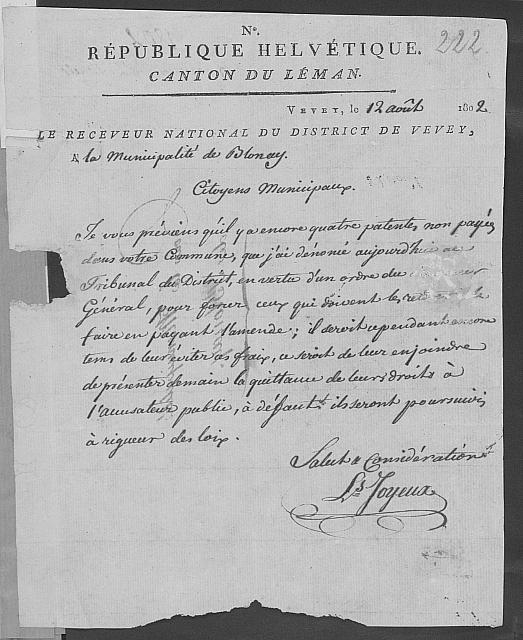 No.
222
RÉPUBLIQUE HELVÉTIQUE.
CANTON DU LÉMAN.
VEVEY, le 12 août 1802
LE RECEVEUR NATIONAL DU DISTRICT DE VEVEY,
A la Municipalité de Blonay.
Citoyens Municipaux.
Je vous préviens qu'il y a encore quatre patentes non payées
dans votre Commune, que j'ai dénoncé aujourdhui au
Tribunal du District, en vertu d'un ordre du
Général, pour forcer ceux qui doivent le
faire en payant l'amende; il seroit cependant encore
tems de leur éviter ces fraix, ce seroit de leur enjoindre
de présenter demain la quittance de leurs droits à
l'accusateur public, à deffaut ils seront poursuivis
à rigueur des loix.
Salut & Considération
Ls Joyeux